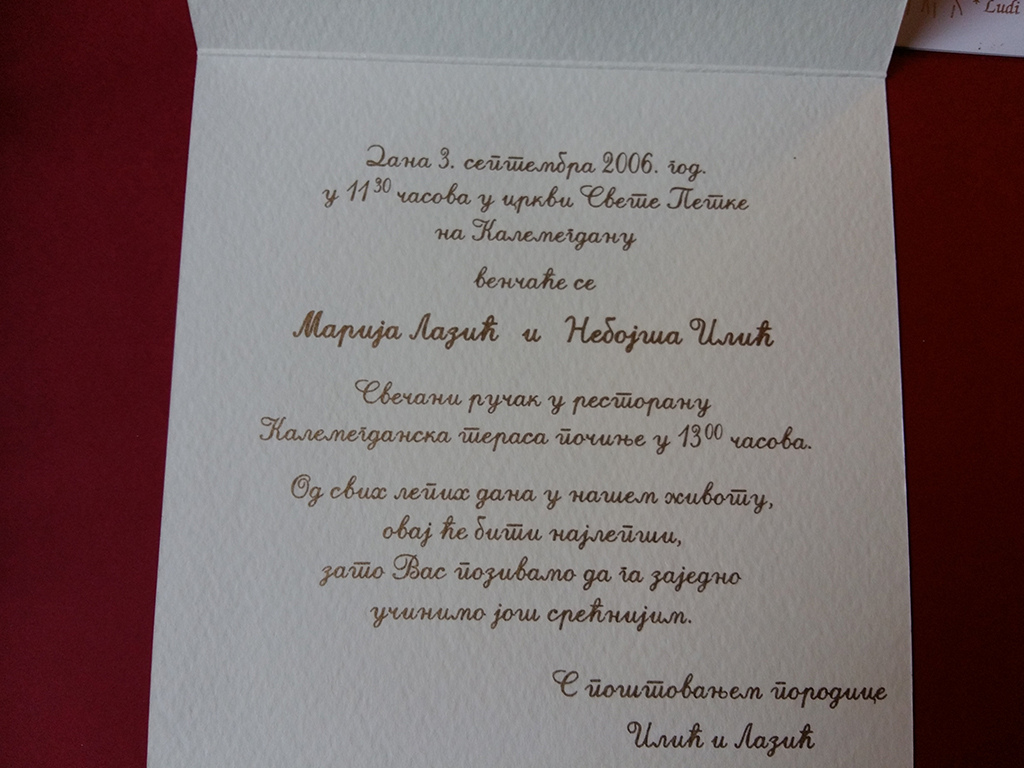 Ludi
Дана 3. септембра 2006. год.
у 11³⁰ часова у цркви Свете Петке
на Калемегдану
венчаће се
Марија Лазић и Небојша Илић
Свечани ручак у ресторану
Калемегданска тераса почиње у 13⁰⁰ часова.
Од свих лепих дана у нашем животу,
овај ће бити најлепши,
зато Вас позивамо да га заједно
учинимо још срећнијим.
С поштовањем породице
Илић и Лазић